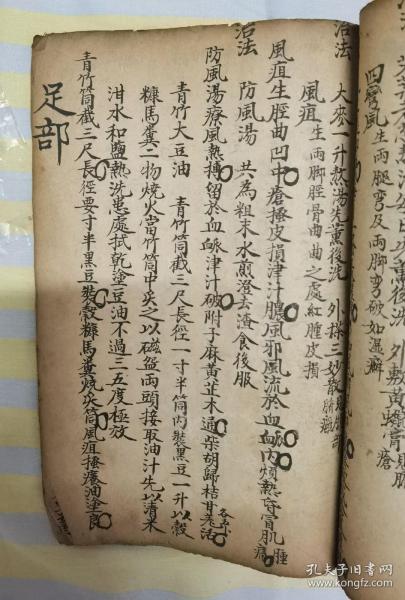 四彎風 生兩腿彎及兩脚彎破如濕癬
治法 大麥一升熬湯先薰後洗 外搽三妙散
風疽 生兩脚脛骨曲曲之處紅腫皮損
風疽生脛曲凹中瘡搔皮損津汁膿風邪風流於血內煩熱昏冒肌腫痛
治法 防風湯 共為粗末水煎澄去渣食後服
防風湯療風熱搏留於血津汁破附子麻黃芷木通柴胡歸桔甘羌活
青竹大豆油 青竹筒截三尺長徑一寸半筒內裝黑豆一升以穀
糠馬糞二物燒火當竹筒中炙之以磁盌兩頭接取油汁先以清米
泔水和鹽熱洗患處拭乾塗豆油不過三五度極效
青竹筒截三尺長徑要寸半黑豆裝穀糠馬糞燒炙筒風疽搔癢油塗良
足部
孔夫子旧书网
www.kongfz.com